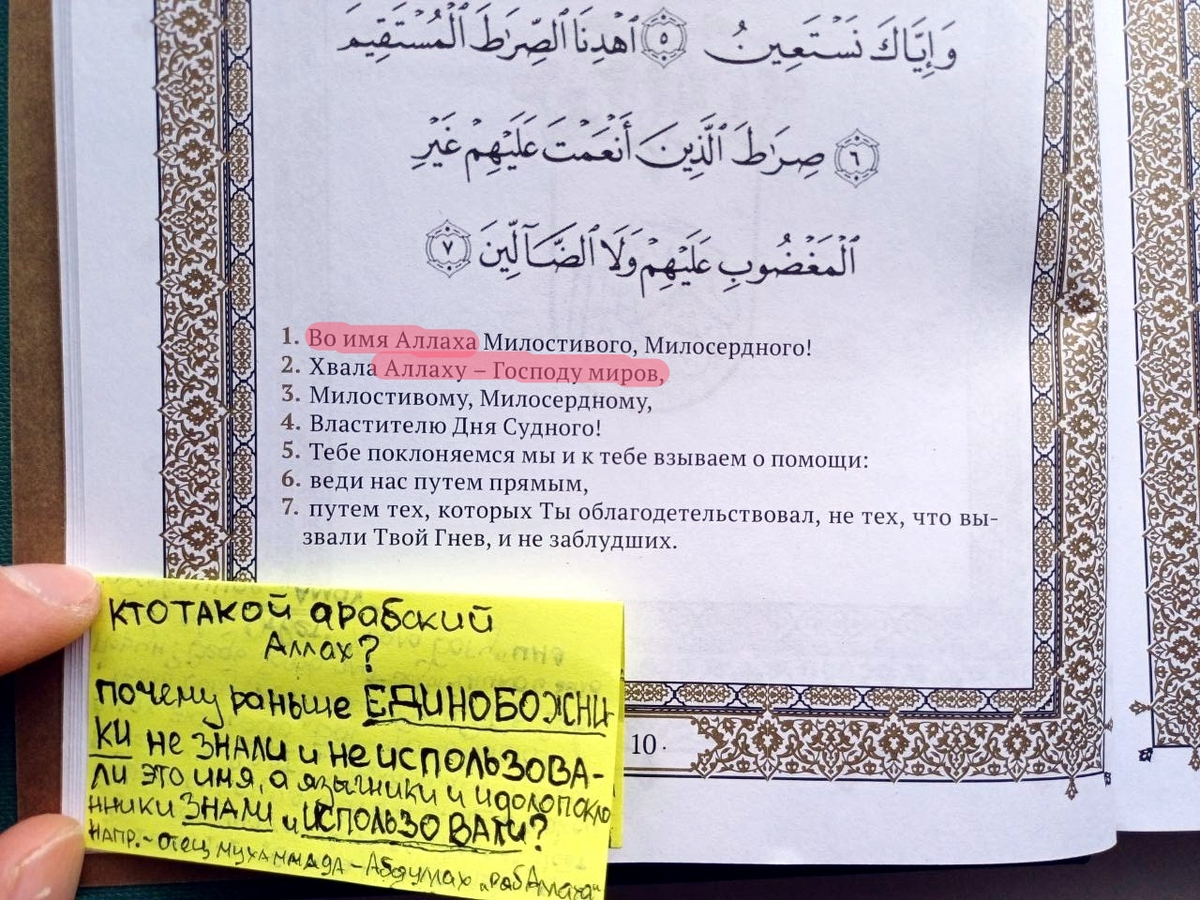 وَإِيَّاكَ نَسْتَعِينُ ٥ ٱهْدِنَا ٱلصِّرَٰطَ ٱلْمُسْتَقِيمَ
٦ صِرَٰطَ ٱلَّذِينَ أَنْعَمْتَ عَلَيْهِمْ غَيْرِ
ٱلْمَغْضُوبِ عَلَيْهِمْ وَلَا ٱلضَّآلِّينَ ٧
1. Во имя Аллаха Милостивого, Милосердного!
2. Хвала Аллаху – Господу миров,
3. Милостивому, Милосердному,
4. Властителю Дня Судного!
5. Тебе поклоняемся мы и к тебе взываем о помощи:
6. веди нас путем прямым,
7. путем тех, которых Ты облагодетельствовал, не тех, что вы-
звали Твой Гнев, и не заблудших.
кто такой арабский
Аллах?
почему раньше ЕДИНОБОЖНИ-
КИ не ЗНАЛИ и не использова-
ли это имя, а язычники и идолопокло
нники ЗНАЛИ и ИСПОЛЬЗОВАЛИ?
напр.- отец мухаммада - Абдуллах „раб Аллаха“
10